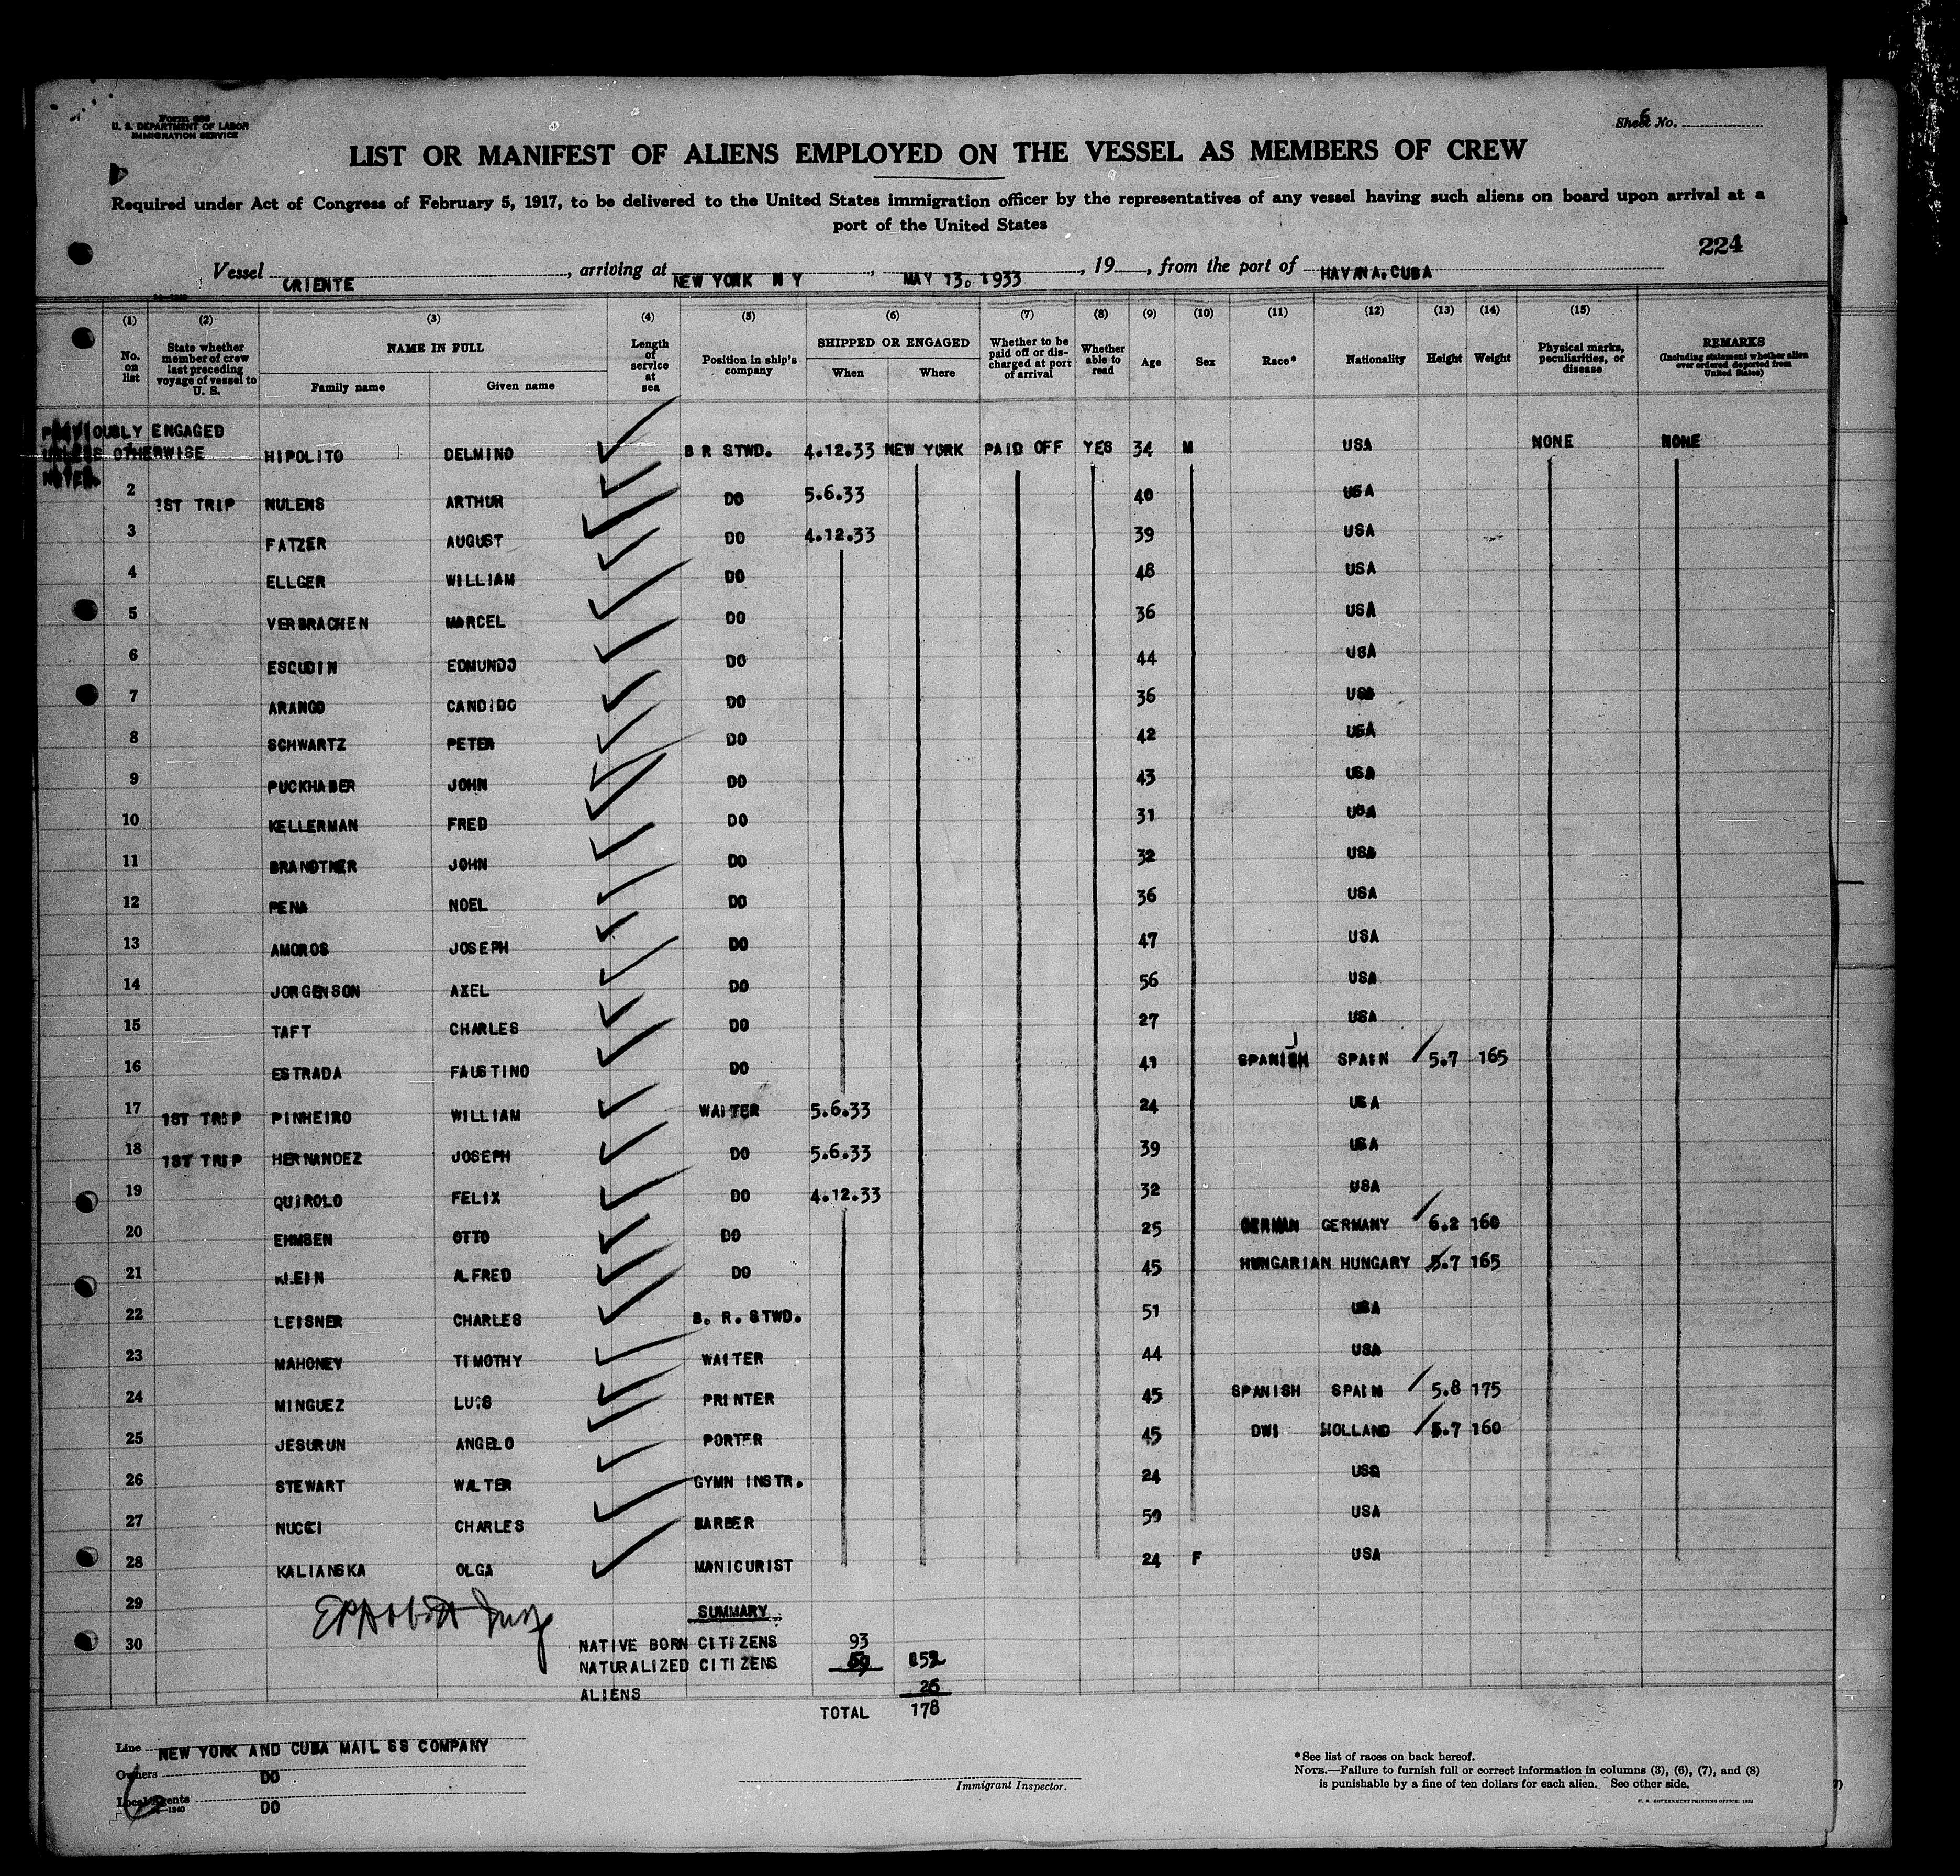 Form 680
U. S. DEPARTMENT OF LABOR
IMMIGRATION SERVICE
Sheet No. 6
LIST OR MANIFEST OF ALIENS EMPLOYED ON THE VESSEL AS MEMBERS OF CREW
Required under Act of Congress of February 5, 1917, to be delivered to the United States immigration officer by the representatives of any vessel having such aliens on board upon arrival at a
port of the United States
224
Vessel ORIENTE, arriving at NEW YORK N Y, MAY 13, 1933, 19, from the port of HAVANA, CUBA
(1) (2) (3) (4) (5) (6) (7) (8) (9) (10) (11) (12) (13) (14) (15)
No. on list State whether member of crew last preceding voyage of vessel to U. S. NAME IN FULL Family name Given name Length of service at sea Position in ship's company SHIPPED OR ENGAGED When Where Whether to be paid off or discharged at port of arrival Whether able to read Age Sex Race* Nationality Height Weight Physical marks, peculiarities, or disease REMARKS (Including statement whether alien ever ordered deported from United States)
PREVIOUSLY ENGAGED
UNLESS OTHERWISE HIPOLITO DELMINO B R STWD. 4.12.33 NEW YORK PAID OFF YES 34 M USA NONE NONE
NOTED.
2 1ST TRIP NULENS ARTHUR DO 5.6.33 40 USA
3 FATZER AUGUST DO 4.12.33 39 USA
4 ELLGER WILLIAM DO 48 USA
5 VERBRACHEN MARCEL DO 36 USA
6 ESCUDIN EDMUNDO DO 44 USA
7 ARANGO CANDIDO DO 36 USA
8 SCHWARTZ PETER DO 42 USA
9 PUCKHABER JOHN DO 43 USA
10 KELLERMAN FRED DO 31 USA
11 BRANDTNER JOHN DO 32 USA
12 PENA NOEL DO 36 USA
13 AMOROS JOSEPH DO 47 USA
14 JORGENSON AXEL DO 56 USA
15 TAFT CHARLES DO 27 USA
16 ESTRADA FAUSTINO DO 41 SPANISH SPAIN 5.7 165
17 1ST TRIP PINHEIRO WILLIAM WAITER 5.6.33 24 USA
18 1ST TRIP HERNANDEZ JOSEPH DO 5.6.33 39 USA
19 QUIROLO FELIX DO 4.12.33 32 USA
20 EHMSEN OTTO DO 25 GERMAN GERMANY 6.2 160
21 KLEIN ALFRED DO 45 HUNGARIAN HUNGARY 5.7 165
22 LEISNER CHARLES B. R. STWD. 51 USA
23 MAHONEY TIMOTHY WAITER 44 USA
24 MINGUEZ LUIS PRINTER 45 SPANISH SPAIN 5.8 175
25 JESURUN ANGELO PORTER 45 DWI HOLLAND 5.7 160
26 STEWART WALTER GYMN INSTR. 24 USA
27 NUCCI CHARLES BARBER 59 USA
28 KALIANSKA OLGA MANICURIST 24 F USA
29 SUMMARY
30 NATIVE BORN CITIZENS 93
NATURALIZED CITIZENS 59 152
ALIENS 26
TOTAL 178
Line NEW YORK AND CUBA MAIL SS COMPANY
Owners DO
Local Agents DO
Immigrant Inspector.
*See list of races on back hereof.
NOTE.—Failure to furnish full or correct information in columns (3), (6), (7), and (8)
is punishable by a fine of ten dollars for each alien. See other side.